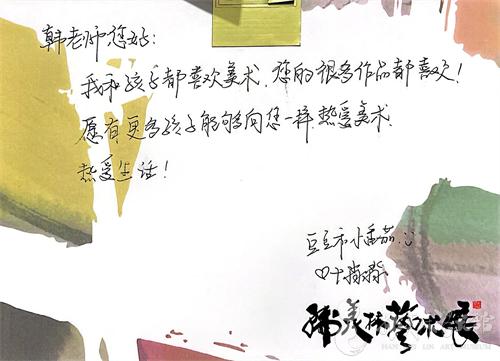 韩老师您好:
我和孩子都喜欢美术,您的很多作品都喜欢!
愿有更多孩子能够向您一样,热爱美术
热爱生活!
豆豆和小番茄:)
叶
韩美林艺术展